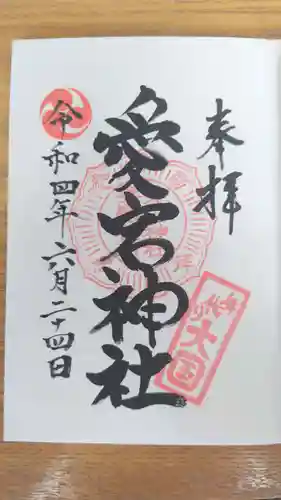 奉拝
愛宕神社
令和四年六月二十四日
大国